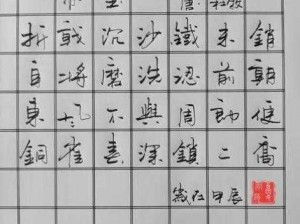 折戟沉沙鐵未銷
自將磨洗認前朝
東風不與周郎便
銅雀春深鎖二喬
歲在甲辰